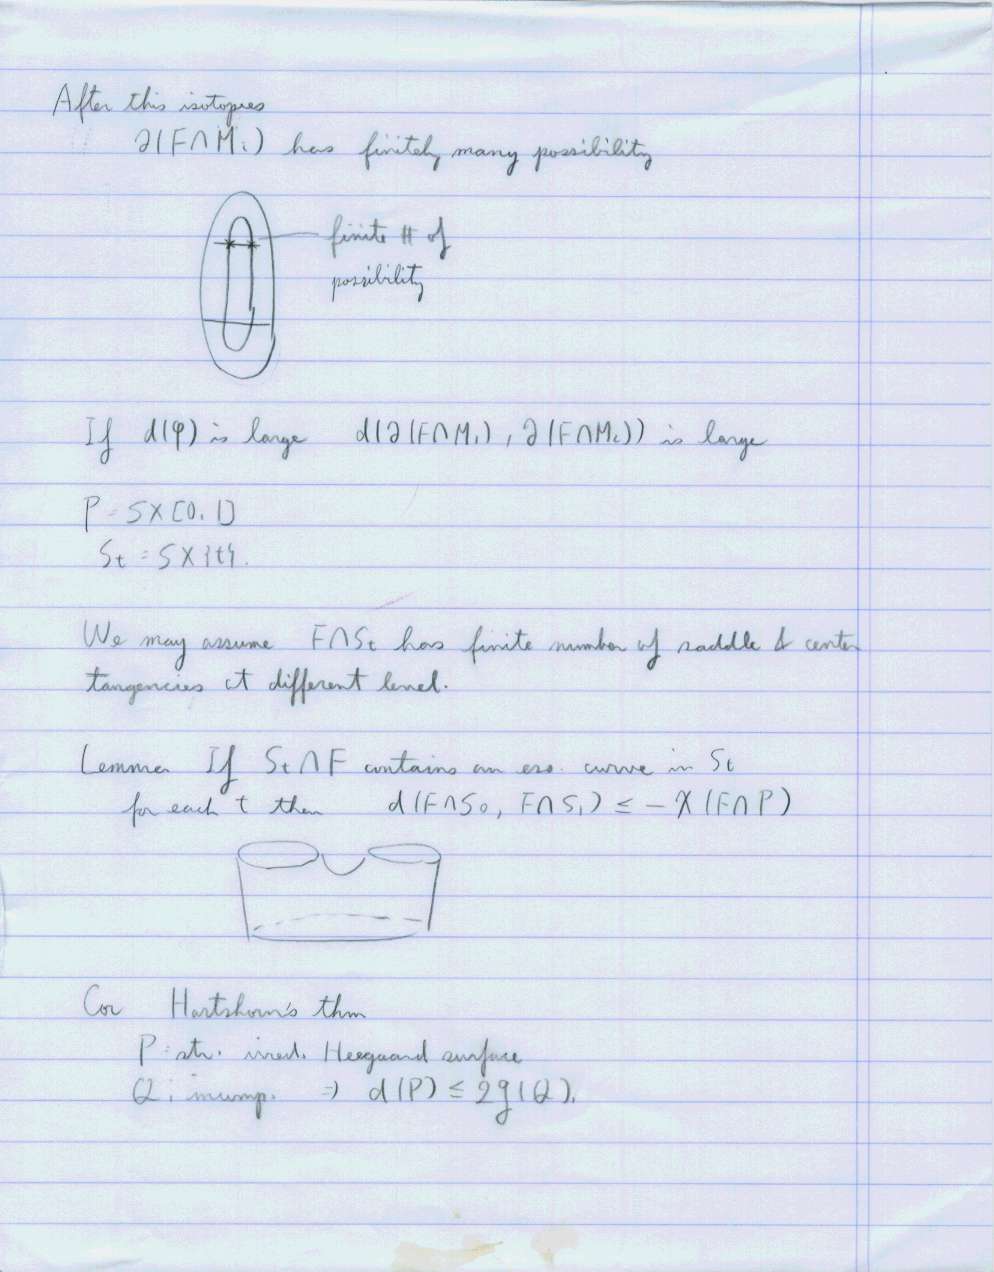 After this isotopies
∂(F∩Mi) has finitely many possibility
finite # of
possibility
If d(φ) is large d(∂(F∩M1), ∂(F∩M2)) is large
P = S×[0,1]
St = S×{t}.
We may assume F∩St has finite number of saddle & center
tangencies at different level.
Lemma If St∩F contains an ess. curve in St
for each t then d(F∩S0, F∩S1) ≤ -χ(F∩P)
Cor Hartshorn's thm
P: str. irred. Heegaard surface
Q: incomp. ⇒ d(P) ≤ 2g(Q).